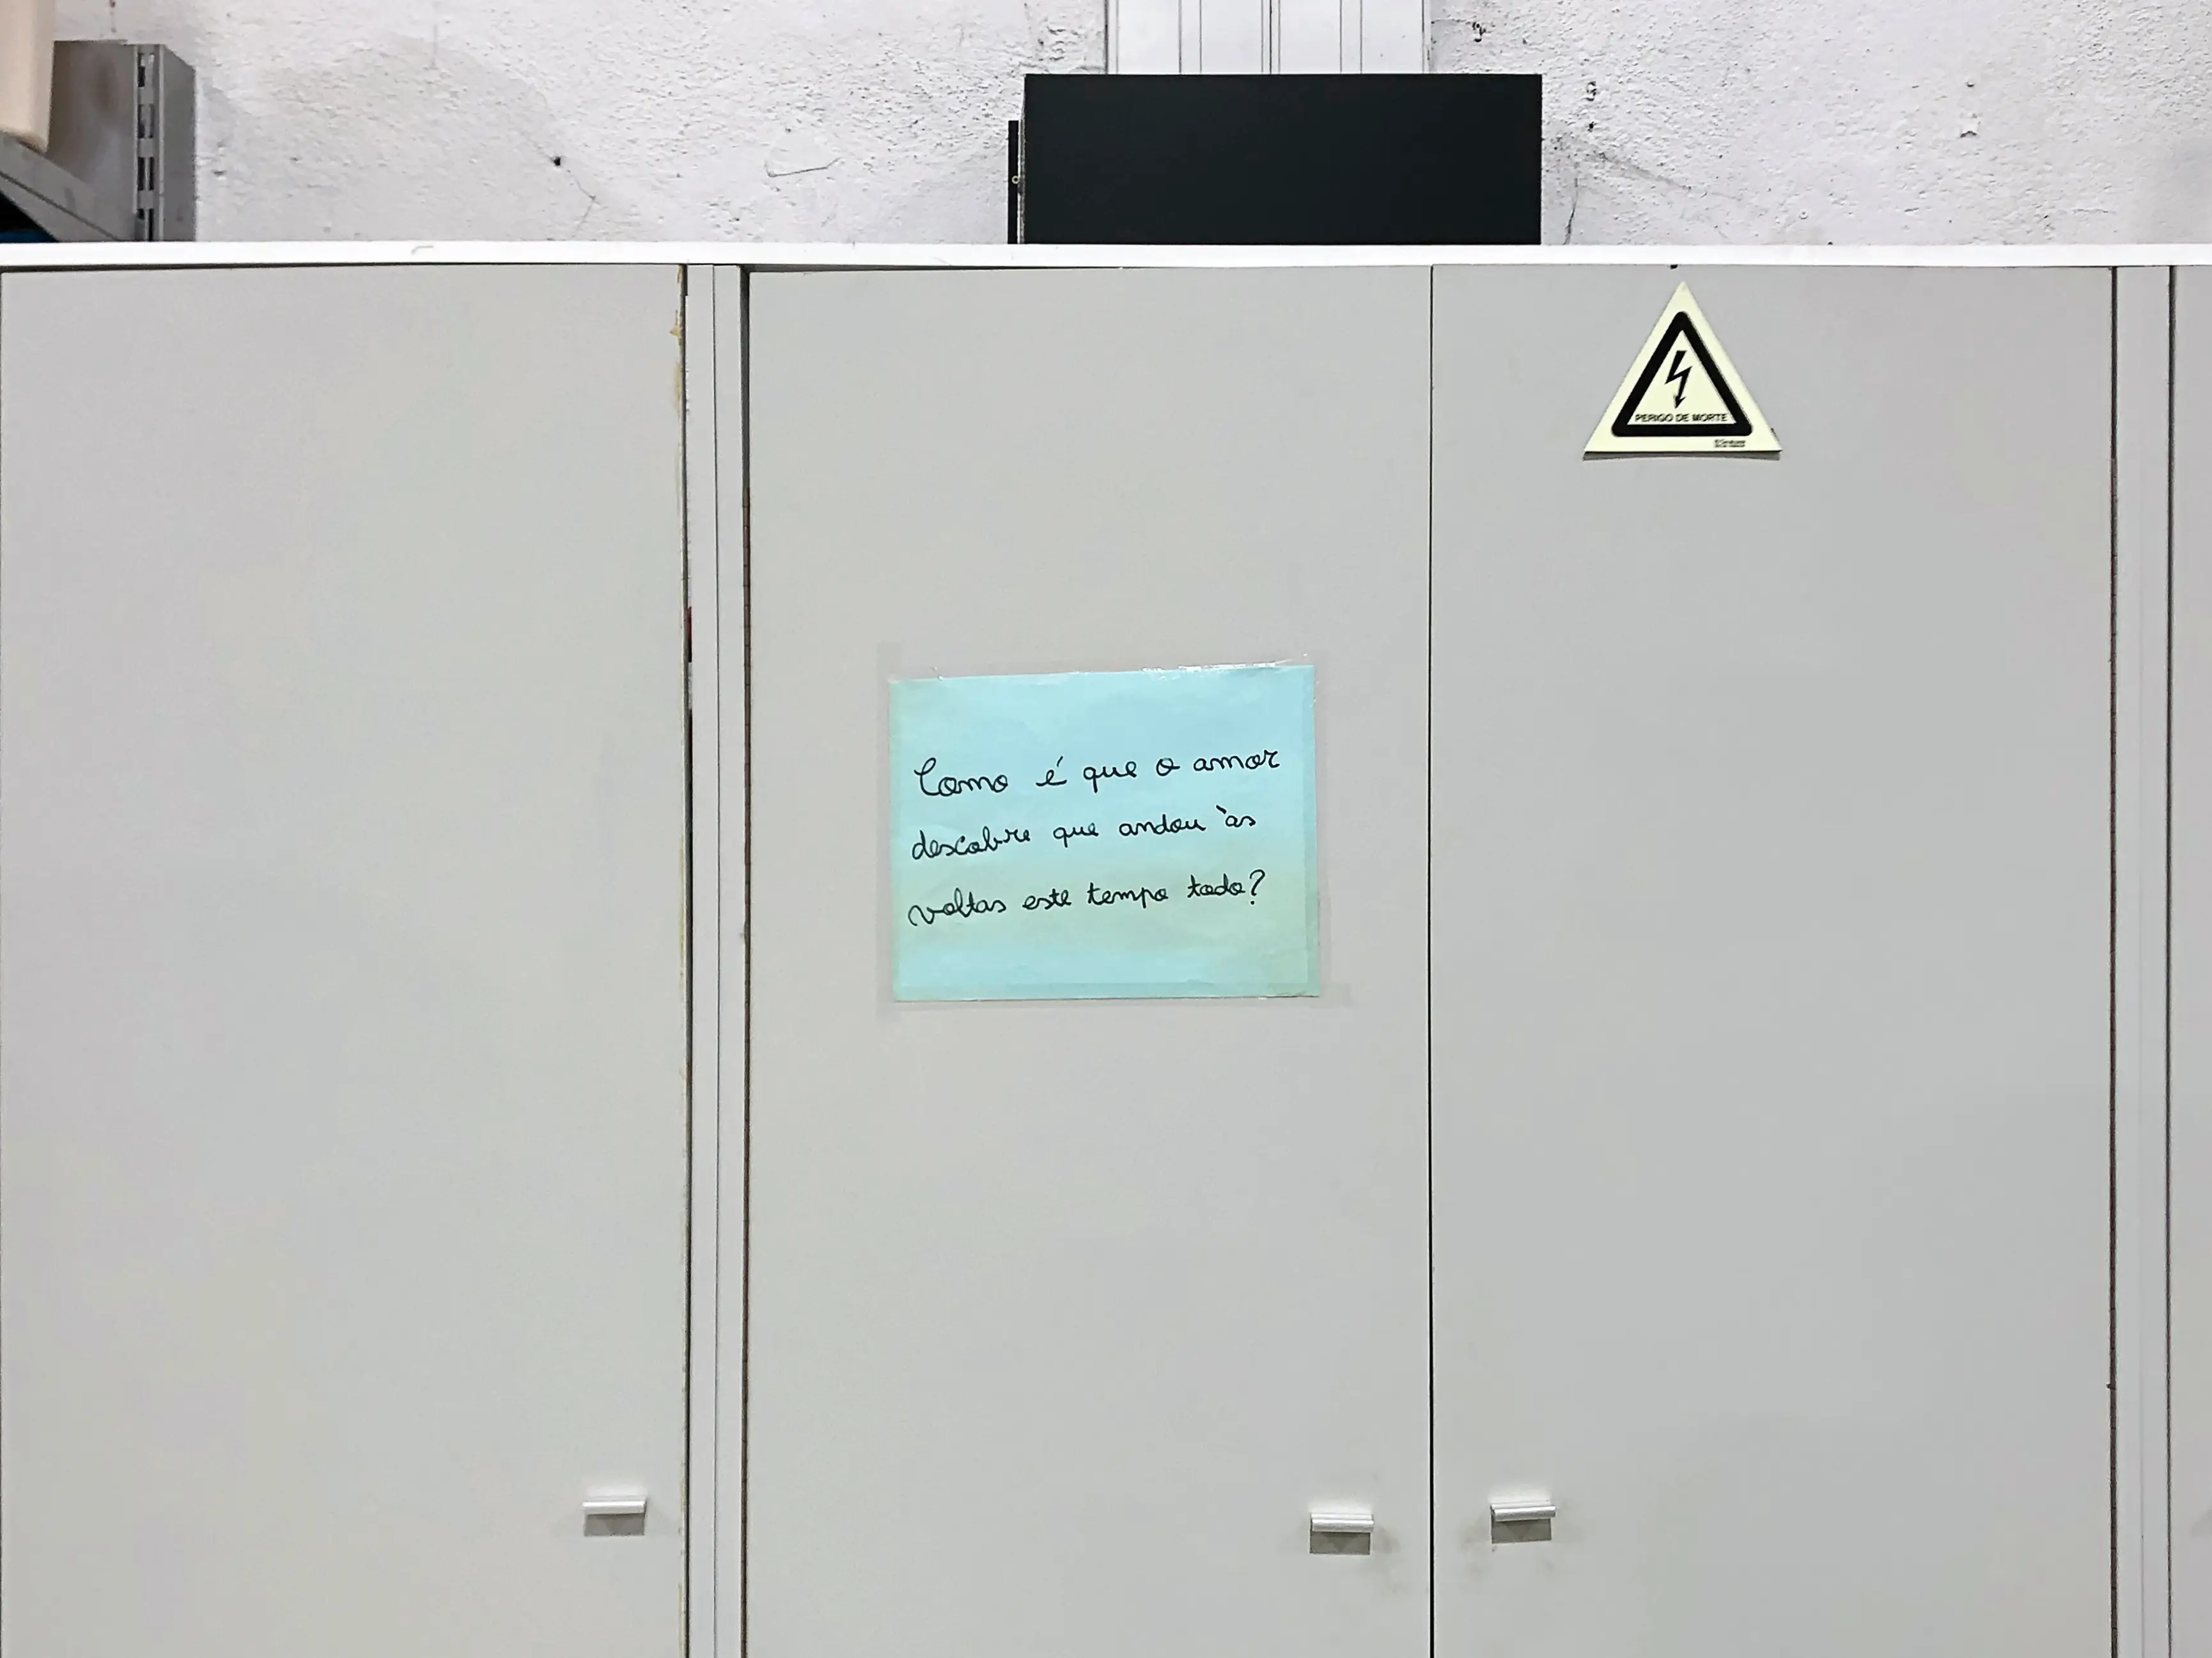 PERIGO DE MORTE
Como é que o amor
descobre que andou às
voltas este tempo todo?